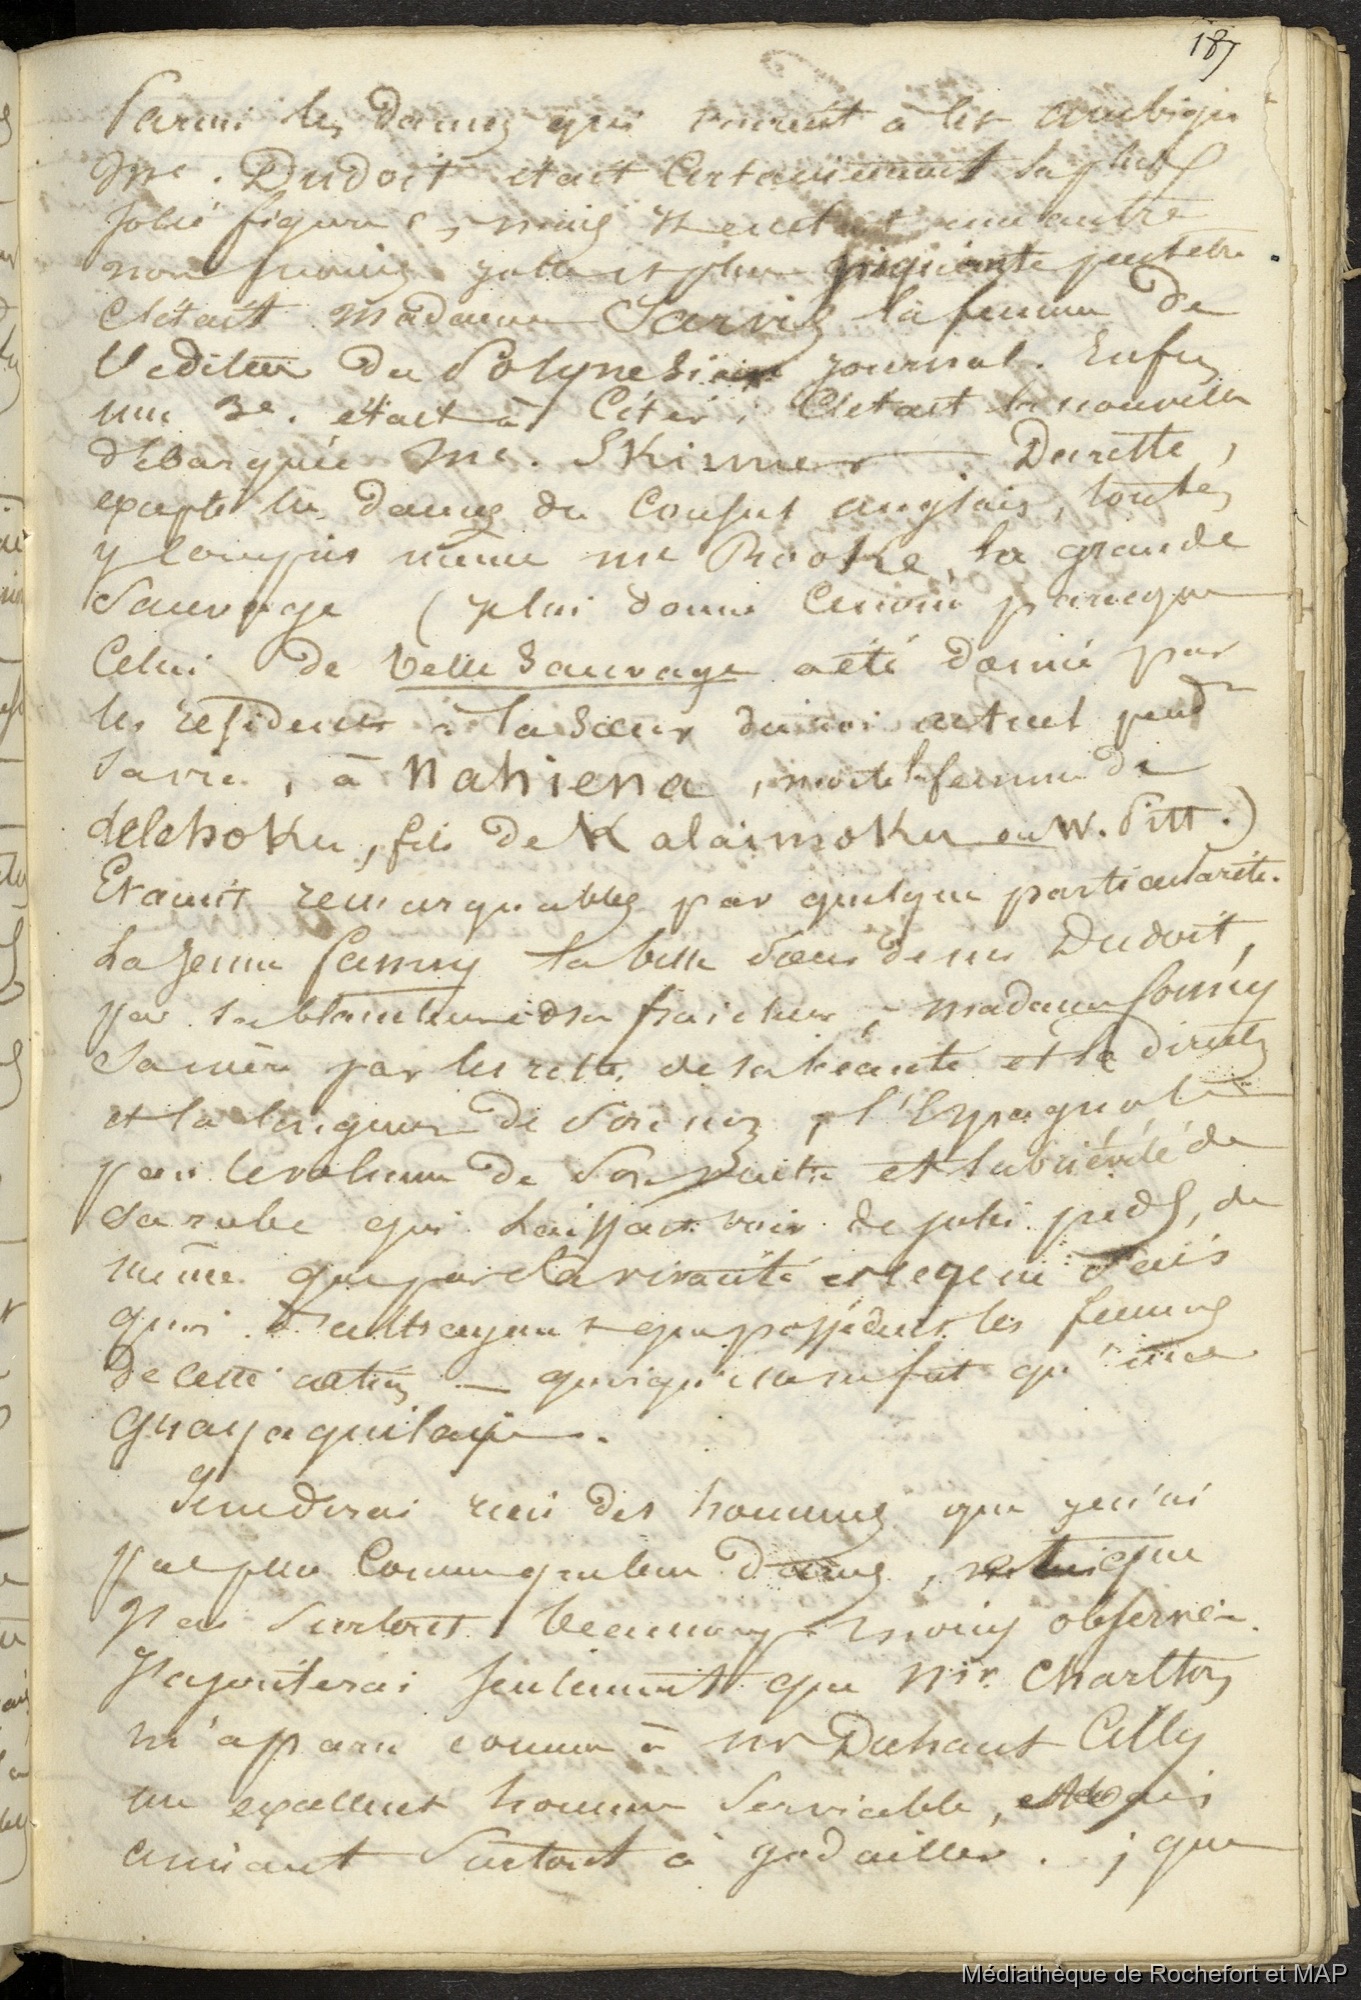 187
Parmi les dames qui vinrent à
Mme. Dudoit était certainement la plus
jolie figure, mais il en était une autre
non moins jolie et plus piquante peutetre
C'était Madame Jarvis la femme de
l'editeur du Polynesian journal. Enfin
une 3e. était à citer, C'était la nouvelle
débarquée Me. Skinner Du reste,
excepté les dames du Consul anglais, toutes
y compris même me Rooke, la grande
Sauvage ( je lui donne ce nom parceque
Celui de belle Sauvage a été donné par
les residents à la Sœur du roi actuel pendt
sa vie, à Nahiena, morte la femme de
Leleioku, fils de Kalaimoku ou W. Pitt.)
Etaient remarquables par quelque particularité.
La jeune Fanny la belle Sœur de mr Dudoit,
par sa blancheur et sa fraicheur, madame Jonny
Sa mère par les restes de sa beauté et la
et la longueur de Son nez, l'Espagnole
par le volume de Son et la brièveté de
Sa robe qui laissait voir de jolis pieds, de
même que par Sa vivacité et ce je ne sais
quoi d'attrayant que possèdent les femmes
de cette nation — quoiqu'elle ne fut qu'une
Guayaquilaise.
Je ne dirai rien des hommes que je n'ai
pas pu connaitre dames, et que
j'ai surtout beaucoup moins observés.
J'ajouterai seulement que Mr. Charlton
m'a paru comme à mr Duhaut Cilly
un excellent homme serviable,
aimant surtout à godailler. ; que
Médiathèque de Rochefort et MAP